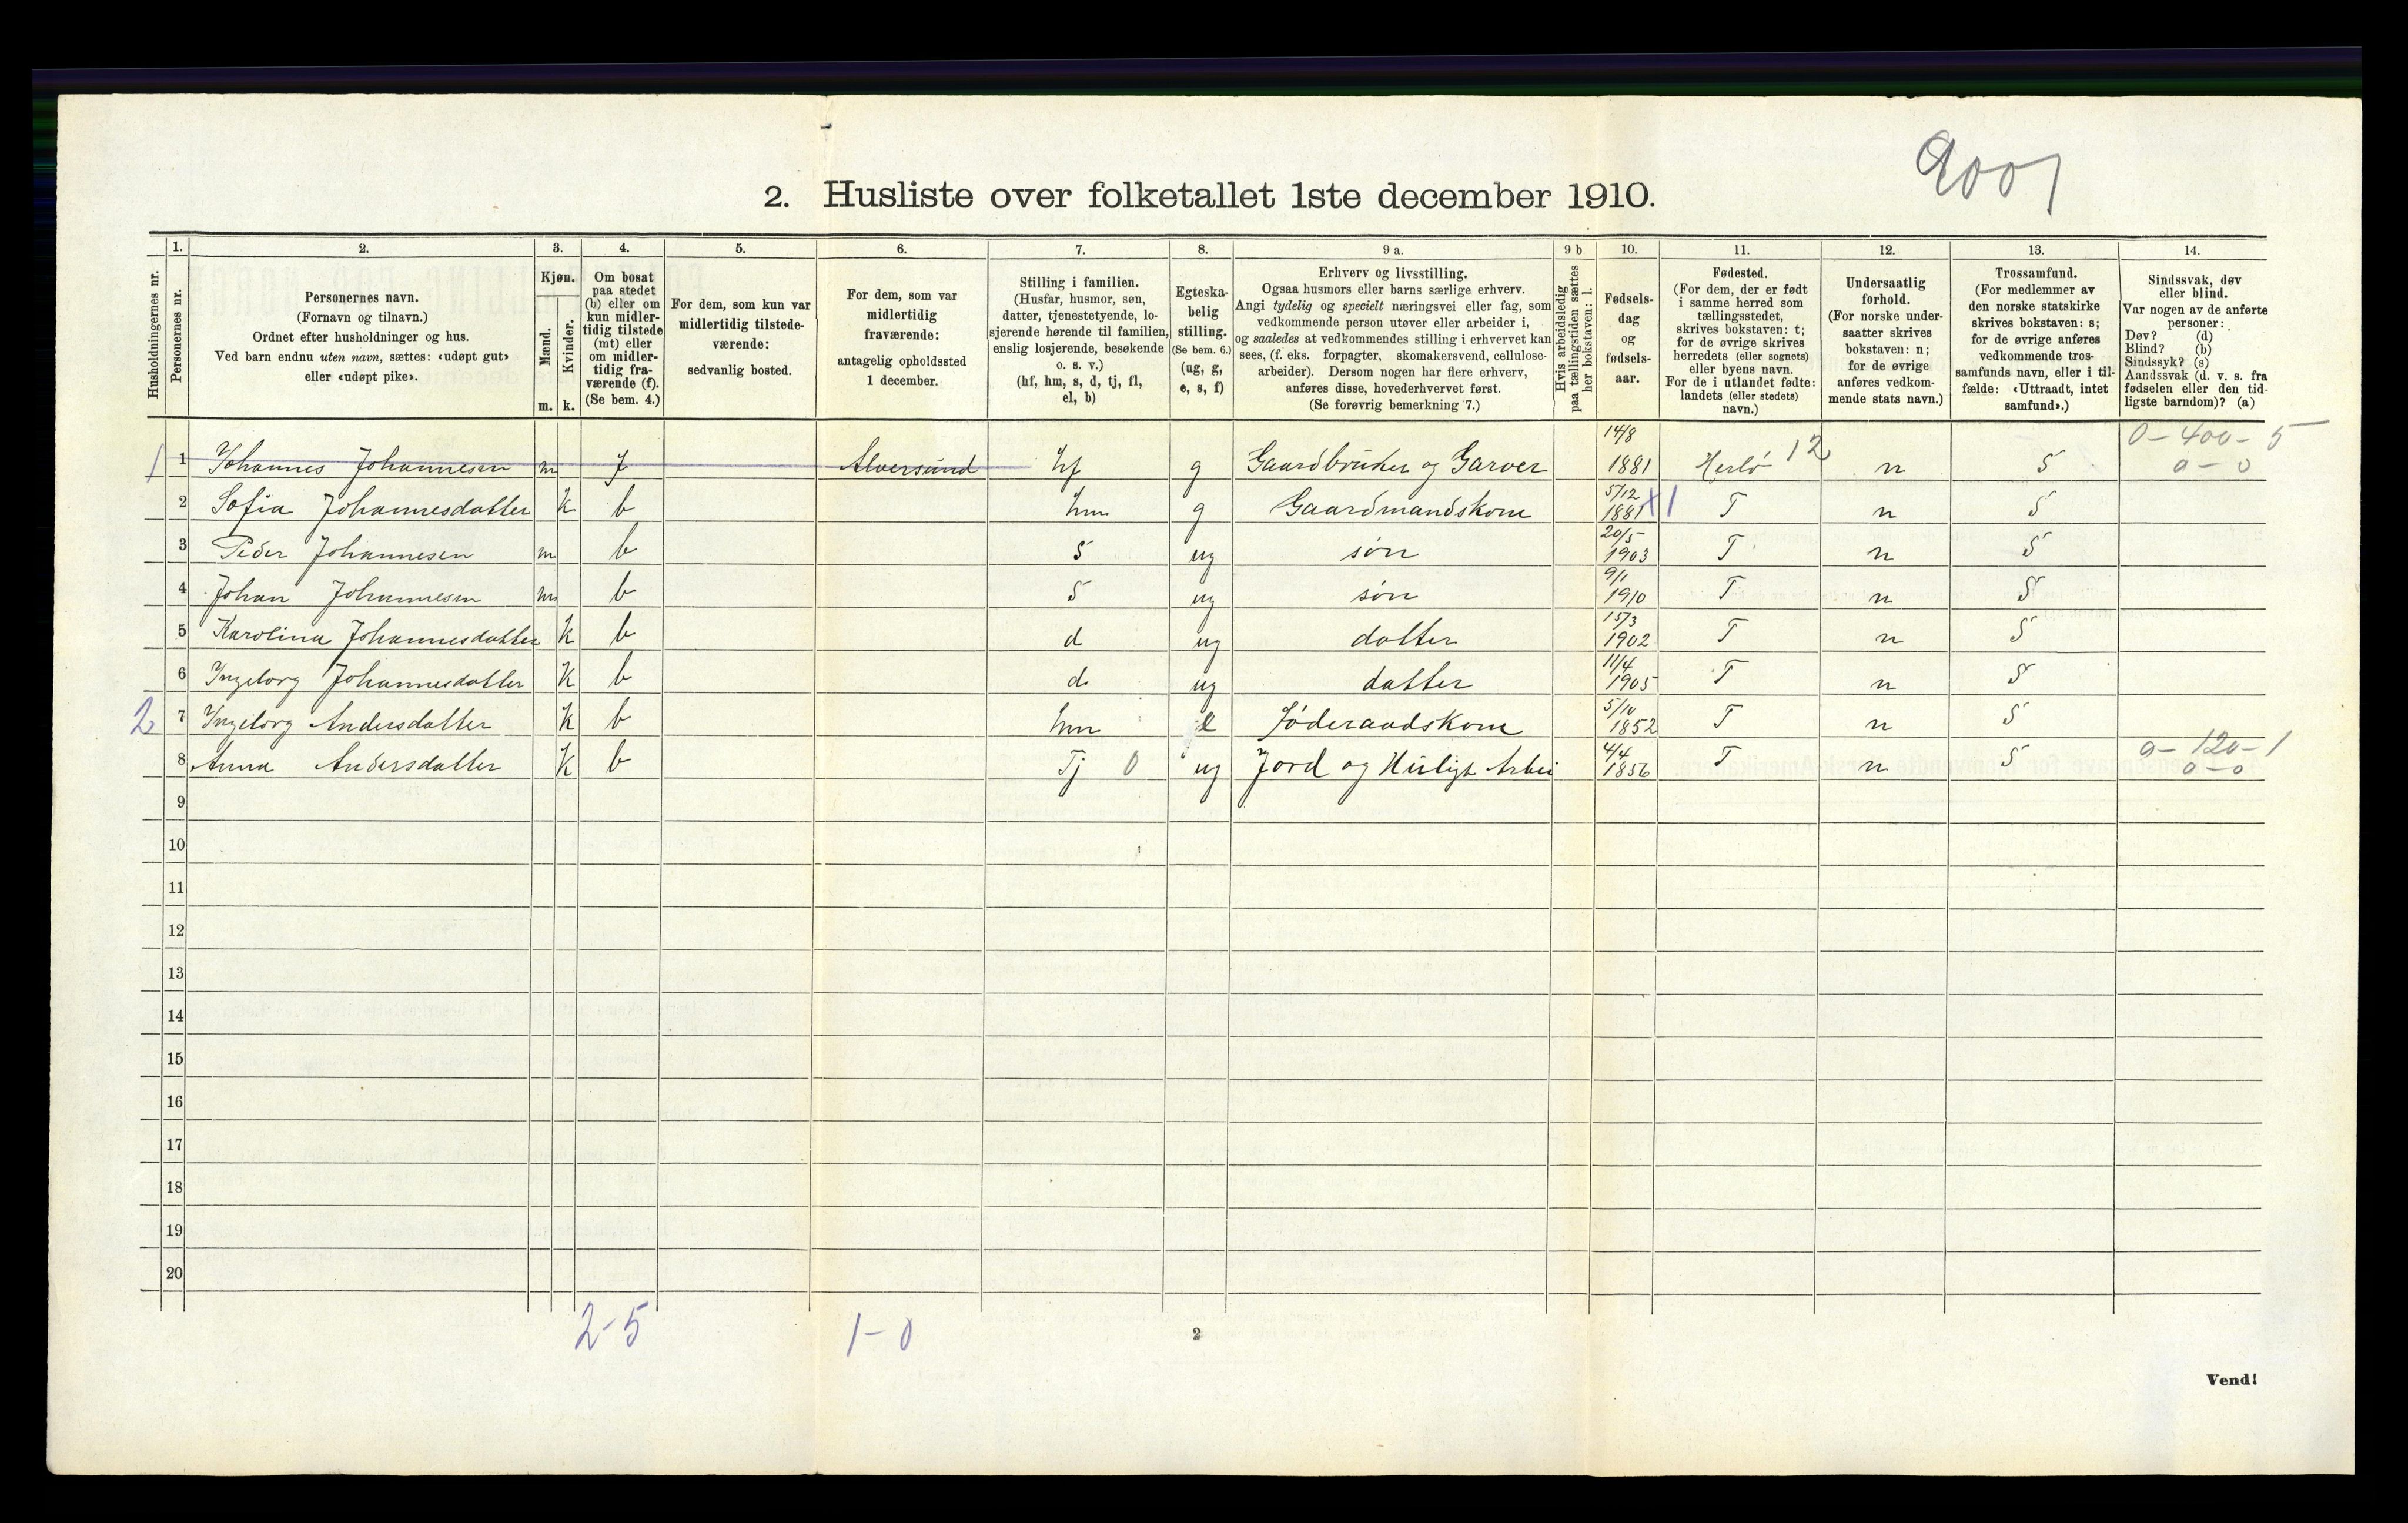 9001
2. Husliste over folketallet 1ste december 1910.
Husholdningernes nr.
1. Personernes nr.
2. Personernes navn.
(Fornavn og tilnavn.)
Ordnet efter husholdninger og hus.
Ved barn endnu uten navn, sættes: «udøpt gut»
eller «udøpt pike».
3. Kjøn.
Mænd. m.
Kvinder. k.
4. Om bosat
paa stedet
(b) eller om
kun midler-
tidig tilstede
(mt) eller
om midler-
tidig fra-
værende (f).
(Se bem. 4.)
5. For dem, som kun var
midlertidig tilstede-
værende:
sedvanlig bosted.
6. For dem, som var
midlertidig
fraværende:
antagelig opholdssted
1 december.
7. Stilling i familien.
(Husfar, husmor, søn,
datter, tjenestetyende, lo-
sjerende hørende til familien,
enslig losjerende, besøkende
o. s. v.)
(hf, hm, s, d, tj, fl,
el, b)
8. Egteska-
belig
stilling.
(Se bem. 6.)
(ug, g,
e, s, f)
9 a. Erhverv og livsstilling.
Ogsaa husmors eller barns særlige erhverv.
Angi tydelig og specielt næringsvei eller fag, som
vedkommende person utøver eller arbeider i,
og saaledes at vedkommendes stilling i erhvervet kan
sees, (f. eks. forpagter, skomakersvend, cellulose-
arbeider). Dersom nogen har flere erhverv,
anføres disse, hovederhvervet først.
(Se forøvrig bemerkning 7.)
9 b. Hvis arbeidsledig
paa tællingstiden sættes
her bokstaven: l.
10. Fødsels-
dag
og
fødsels-
aar.
11. Fødested.
(For dem, der er født
i samme herred som
tællingsstedet,
skrives bokstaven: t;
for de øvrige skrives
herredets (eller sognets)
eller byens navn.
For de i utlandet fødte:
landets (eller stedets)
navn.)
12. Undersaatlig
forhold.
(For norske under-
saatter skrives
bokstaven: n;
for de øvrige
anføres vedkom-
mende stats navn.)
13. Trossamfund.
(For medlemmer av
den norske statskirke
skrives bokstaven: s;
for de øvrige anføres
vedkommende tros-
samfunds navn, eller i til-
fælde: «Uttraadt, intet
samfund».)
14. Sindssvak, døv
eller blind.
Var nogen av de anførte
personer:
Døv? (d)
Blind? (b)
Sindssyk? (s)
Aandssvak (d. v. s. fra
fødselen eller den tid-
ligste barndom)? (a)
1 1 Johannes Johannesen m f Alversund hf g Gaardbruker og Garver 14/8 1881 Herlø 12 n S 0-400-5 0-0
2 Sofia Johannesdatter k b hm g Gaardmandskone 5/12 1881 X1 T n S
3 Peder Johannesen m b S ug søn 20/5 1903 T n S
4 Johan Johannesen m b S ug søn 9/1 1910 T n S
5 Karolina Johannesdatter k b d ug datter 15/3 1902 T n S
6 Ingeborg Johannesdatter K b d ug datter 11/4 1905 T n S
2 7 Ingeborg Andersdatter k b hm e Føderaadskone 5/10 1852 T n S
8 Anna Andersdatter K b Tj 0 ug Jord og Husligt Arbei 4/4 1856 T n S 0-120-1 0-0
9
10
11
12
13
14
15
16
17
18
19
20
2-5 1-0
2
Vend!